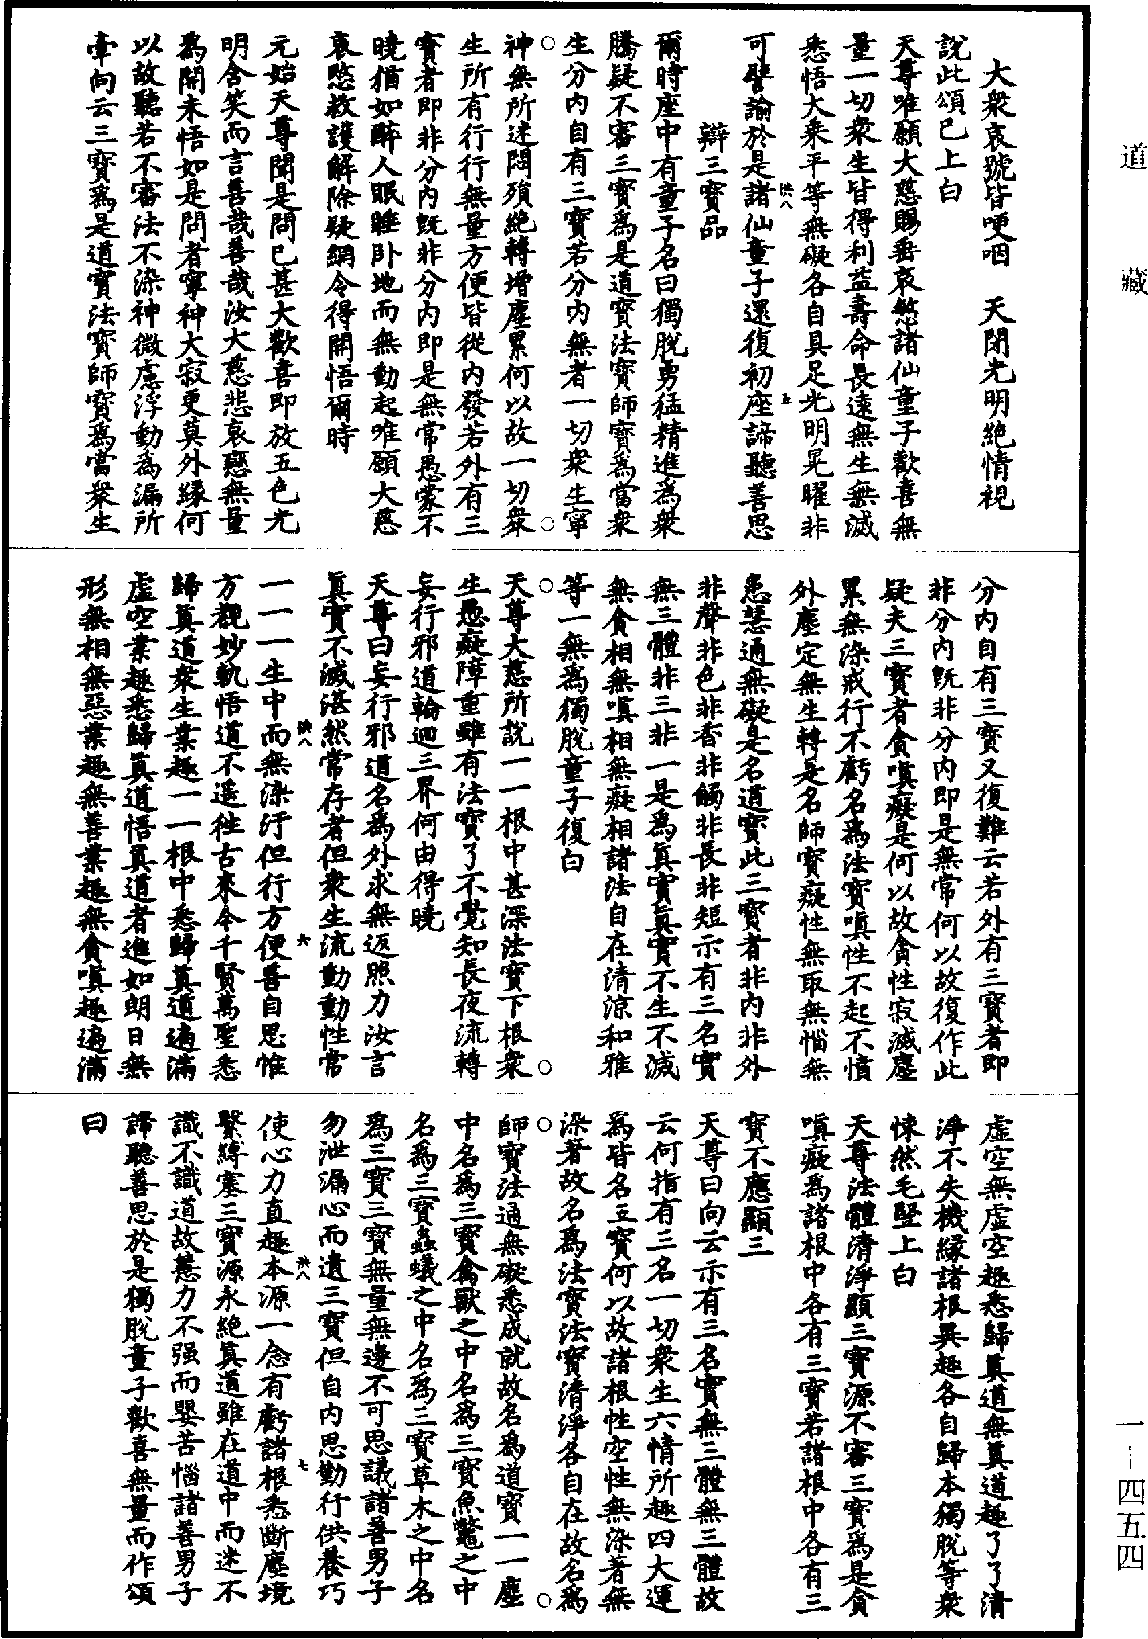 大衆哀號皆哽咽　天閉光明絶情視
說此頌已上白
天尊唯願大慈賜垂哀愍諸仙童子歡喜無
量一切衆生皆得利益壽命長遠無生無滅
悉悟大乘平等無礙各自具足光明晃曜非
可譬諭於是諸仙童子還復初座諦聽善思
辯三寶品
爾時座中有童子名曰獨脫勇猛精進爲衆
騰疑不審三寶爲是道寶法寶師寶爲當衆
生分內自有三寶若分內無者一切衆生寧
神無所述悶殞絶轉增塵累何以故一切衆
生所有行行無量方便皆從內發若外有三
寶者即非分內旣非分內即是無常愚蒙不
曉猶如醉人眠睡卧地而無動起唯願大慈
哀愍救護解除疑網令得開悟爾時
元始天尊聞是問已甚大歡喜即放五色光
明含笑而言善哉善哉汝大慈悲哀戀無量
爲開未悟如是問者寧神大寂更莫外緣何
以故聽若不審法不染神微慮浮動爲漏所
牽向云三寶爲是道寶法寶師寶爲當衆生
分內自有三寶又復難云若外有三寶者即
非分內旣非分內即是無常何以故復作此
疑夫三寶者貪嗔癡是何以故貪性寂滅塵
累無染戒行不虧名爲法寶嗔性不起不憤
外塵定無生轉是名師寶癡性無取無惱無
患慧通無礙是名道寶此三寶者非內非外
非聲非色非香非觸非長非短示有三名實
無三體非三非一是爲眞實眞實不生不滅
無貪相無嗔相無癡相諸法自在清涼和雅
等一無爲獨脫童子復白
天尊大慈所說一一根中甚深法寶下根衆
生愚癡障重雖有法寶了不覺知長夜流轉
妄行邪道輪迴三界何由得曉
天尊曰妄行邪道名爲外求無返照力汝言
眞實不滅湛然常存者但衆生流動動性常
一一一生中而無染汙但行方便善自思惟
方觀妙軌悟道不遥徃古來今千賢萬聖悉
歸眞道衆生業趣一一根中悉歸眞道遍滿
虛空業趣悉歸眞道悟眞道者進如朗日無
形無相無惡業趣無善業趣無貪嗔趣遍滿
虛空無虛空趣悉歸眞道無眞道趣了了清
淨不失機緣諸根異趣各自歸本獨脫等衆
悚然毛竪上白
天尊法體清淨顯三寶源不審三寶爲是貪
嗔癡爲諸根中各有三寶若諸根中各有三
寶不應顯三
天尊曰向云示有三名實無三體無三體故
云何指有三名一切衆生六情所趣四大運
爲皆名五寶何以故諸根性空性無染著無
染著故名爲法寶法寶清淨各自在故名爲
師寶法通無礙悉成就故名爲道寶一一塵
中名爲三寶禽獸之中名爲三寶魚鼈之中
名爲三寶蟲蟻之中名爲三寶草木之中名
爲三寶三寶無量無邊不可思議諸善男子
勿泄漏心而遺三寶但自內思勤行供養巧
使心力直趣本源一念有虧諸根悉斷塵境
繫縛塞三寶源永絶眞道雖在道中而迷不
識不識道故慧力不强而嬰苦惱諸善男子
諦聽善思於是獨脫童子歡喜無量而作頌
曰
道藏
一-四五四